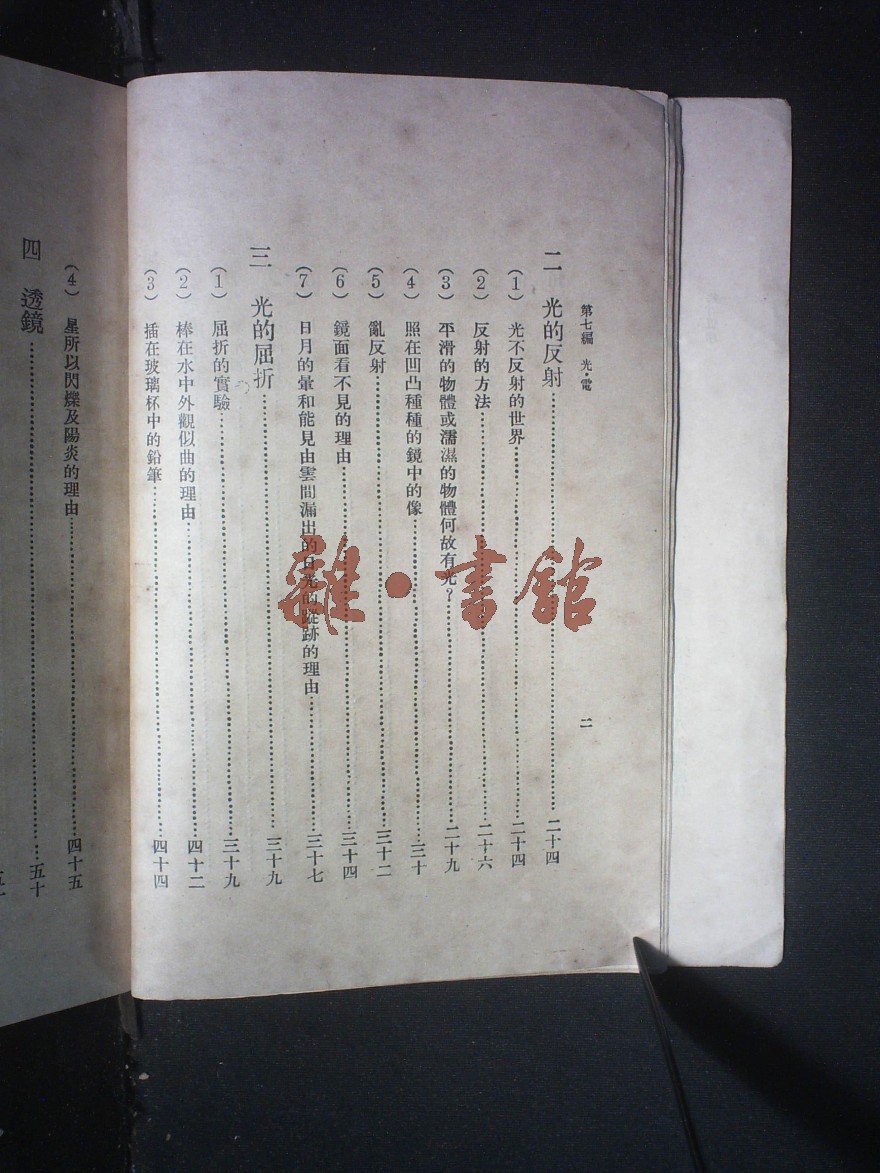 第七編 光·電 二
二 光的反射……二十四
(1) 光不反射的世界……二十四
(2) 反射的方法……二十六
(3) 平滑的物體或濡濕的物體何故有光?……二十九
(4) 照在凹凸種種的鏡中的像……三十
(5) 亂反射……三十二
(6) 鏡面看不見的理由……三十四
(7) 日月的暈和能見由雲間漏出的日光的蹤跡的理由……三十七
三 光的屈折……三十九
(1) 屈折的實驗……三十九
(2) 棒在水中外觀似曲的理由……四十二
(3) 插在玻璃杯中的鉛筆……四十四
(4) 星所以閃爍及陽炎的理由……四十五
四 透鏡……五十
雜·書館